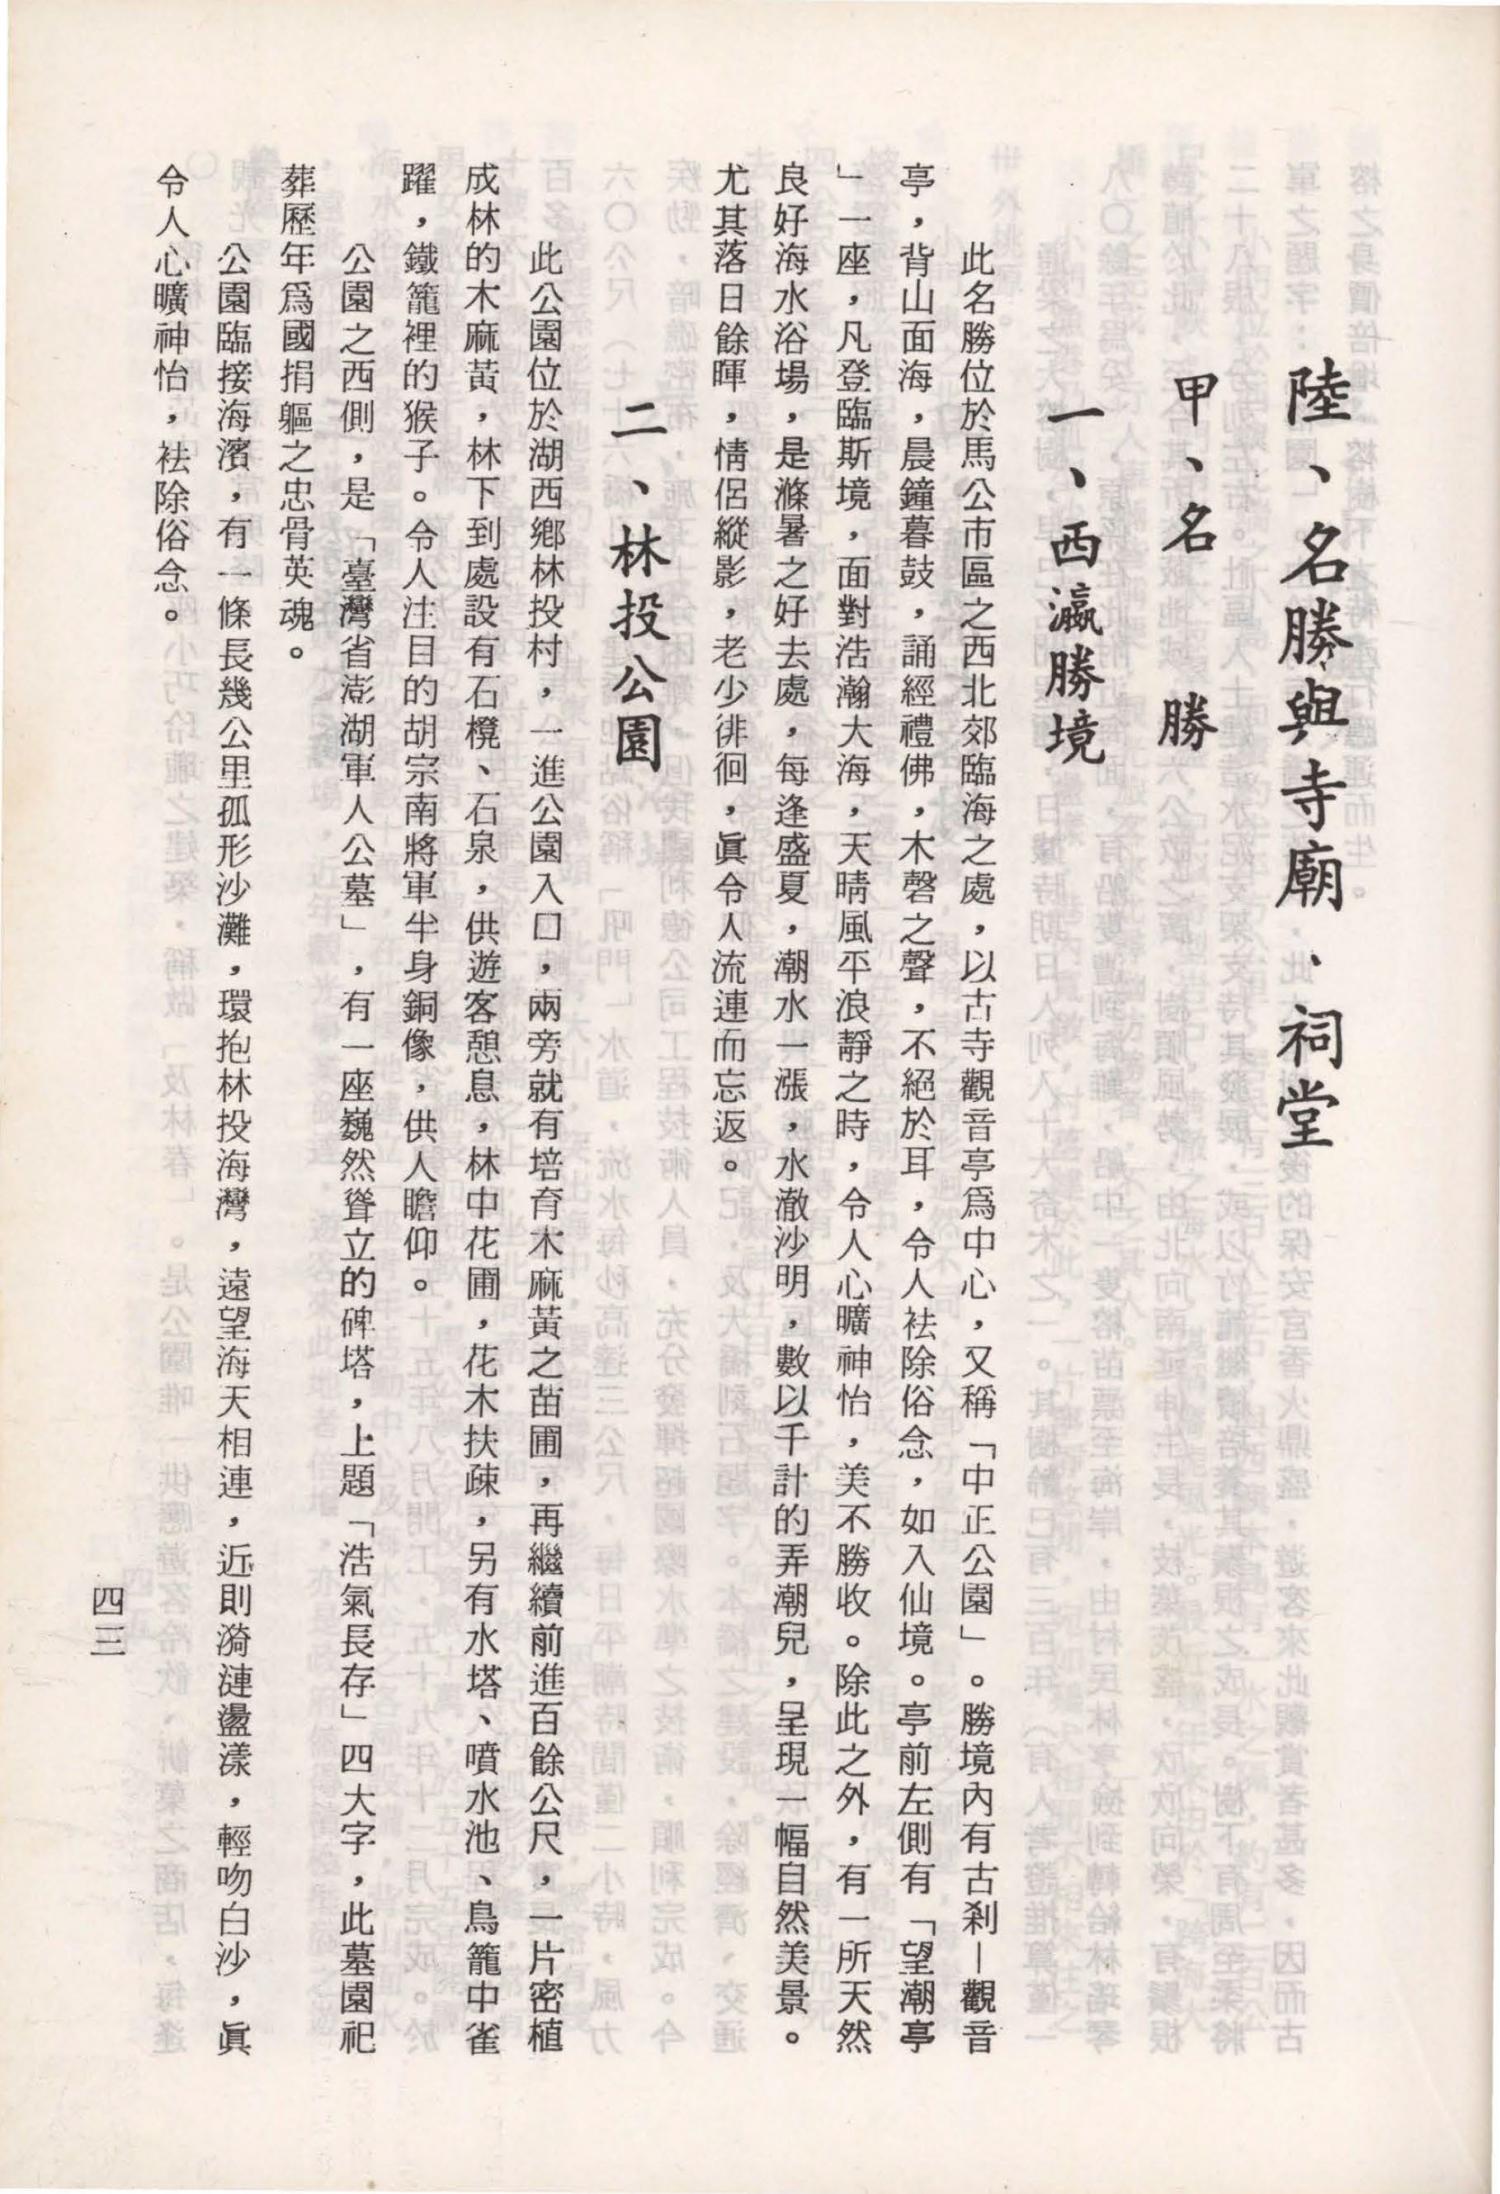 陸、名勝與寺廟、祠堂
甲、名勝
一、西瀛勝境
此名勝位於馬公市區之西北郊臨海之處，以古寺觀音亭爲中心，又稱「中正公園」。勝境內有古剎—觀音
亭，背山面海，晨鐘暮鼓，誦經禮佛，木磬之聲，不絕於耳，令人袪除俗念，如入仙境。亭前左側有「望潮亭
」一座，凡登臨斯境，面對浩瀚大海，天晴風平浪靜之時，令人心曠神怡，美不勝收。除此之外，有一所天然
良好海水浴場，是滌暑之好去處，每逢盛夏，潮水一漲，水澈沙明，數以千計的弄潮兒，呈現一幅自然美景。
尤其落日餘暉，情侶縱影，老少徘徊，眞令人流連而忘返。
二、林投公園
此公園位於湖西鄉林投村，一進公園入口，兩旁就有培育木麻黃之苗圃，再繼續前進百餘公尺，一片密植
成林的木麻黃，林下到處設有石櫈、石泉，供遊客憩息，林中花圃，花木扶疎，另有水塔、噴水池、鳥籠中雀
躍，鐵籠裡的猴子。令人注目的胡宗南將軍半身銅像，供人瞻仰。
公園之西側，是「臺灣省澎湖軍人公墓」，有一座巍然聳立的碑塔，上題「浩氣長存」四大字，此墓園祀
葬歷年爲國捐軀之忠骨英魂。
公園臨接海濱，有一條長幾公里孤形沙灘，環抱林投海灣，遠望海天相連，近則漪漣盪漾，輕吻白沙，眞
令人心曠神怡，袪除俗念。
四三